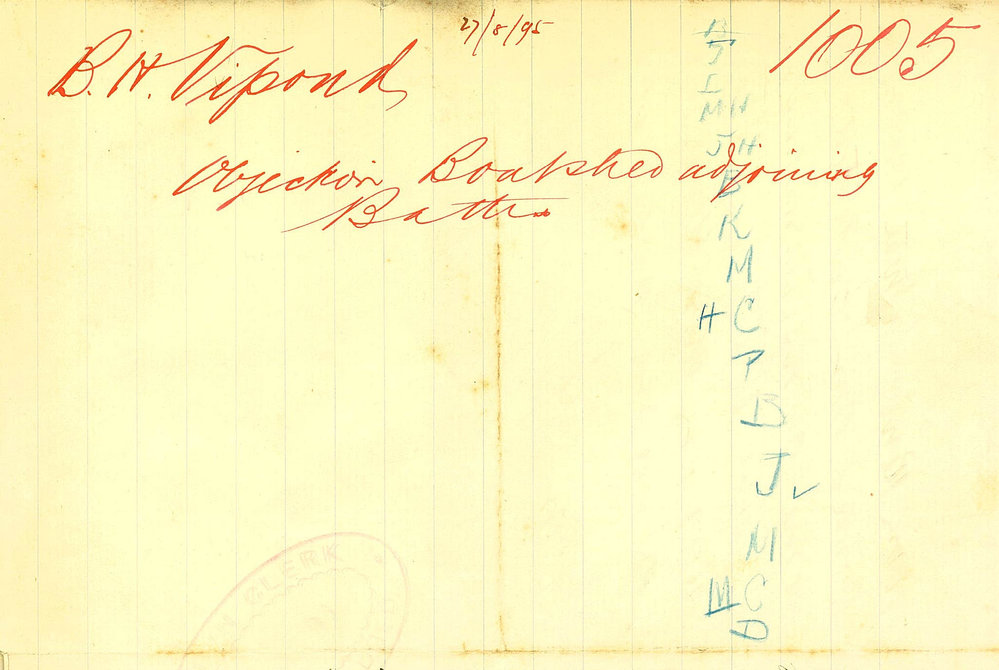 27/8/95
B. H. Vipond
1005
Objection Boatshed adjoining
Baths
I
M H
J H
B
K
M
H C
P
B
J ✓
M
M C
D
CLERK